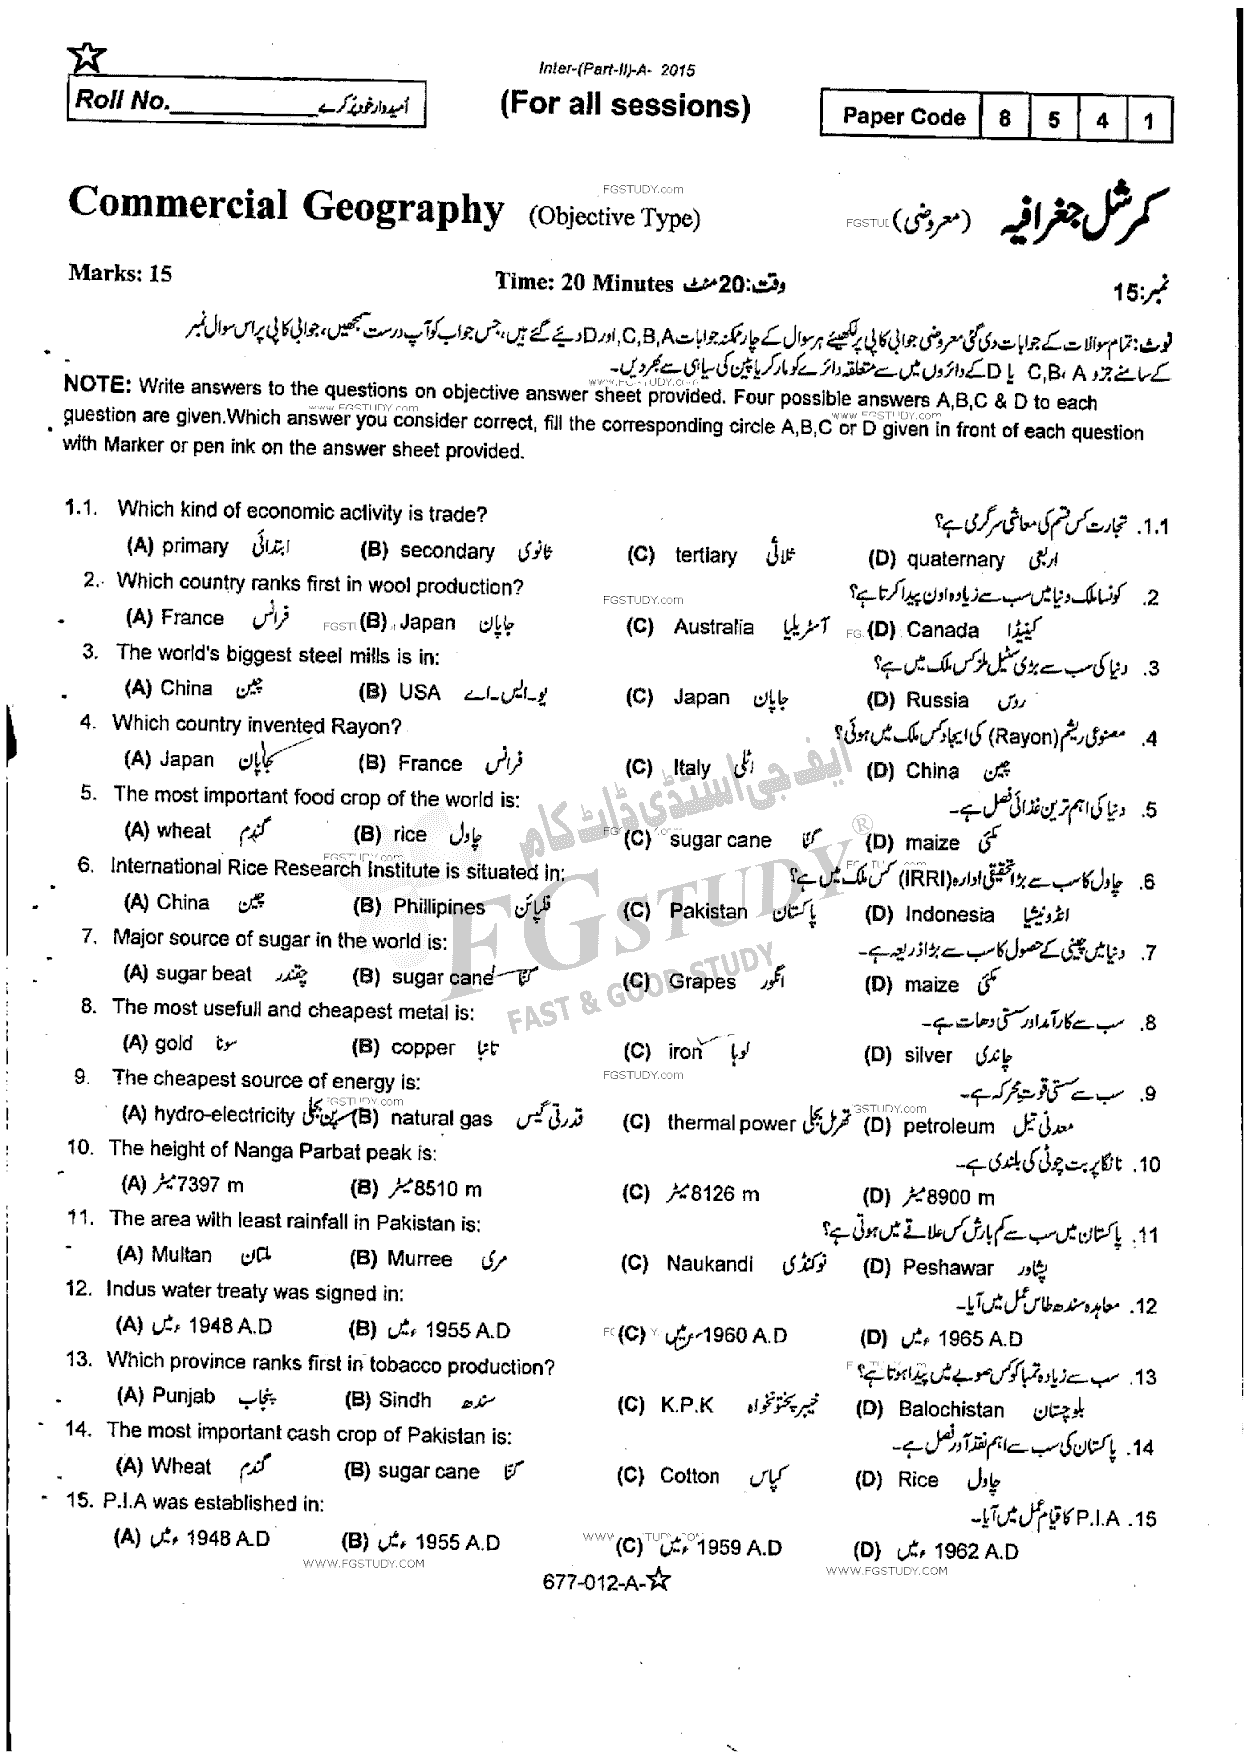 Inter-(Part-II)-A- 2015
Roll No.____________ امیدوار خود پُر کرے
(For all sessions)
Paper Code 8 5 4 1
Commercial Geography (Objective Type)
FGSTUDY.com
(معروضی) کمرشل جغرافیہ
Marks: 15
Time: 20 Minutes وقت:20 منٹ
نمبر:15
نوٹ: تمام سوالات کے جوابات دی گئی معروضی جوابی کاپی پر لکھیئے ہر سوال کے چار ممکنہ جوابات C,B,A اور D دیئے گئے ہیں، جس جواب کو آپ درست سمجھیں، جوابی کاپی پر اس سوال نمبر
کے سامنے جزو C,B,A یا D کے دائروں میں سے متعلقہ دائرے کو مارکر یا پین کی سیاہی سے بھر دیں۔
NOTE: Write answers to the questions on objective answer sheet provided. Four possible answers A,B,C & D to each
question are given.Which answer you consider correct, fill the corresponding circle A,B,C or D given in front of each question
with Marker or pen ink on the answer sheet provided.
1.1. Which kind of economic activity is trade? تجارت کس قسم کی معاشی سرگرمی ہے؟ .1.1
(A) primary ابتدائی (B) secondary ثانوی (C) tertiary ثلاثی (D) quaternary اربعی
2. Which country ranks first in wool production? کونسا ملک دنیا میں سب سے زیادہ اون پیدا کرتا ہے؟ .2
FGSTUDY.com
(A) France فرانس (B) Japan جاپان (C) Australia آسٹریلیا (D) Canada کینیڈا
3. The world's biggest steel mills is in: دنیا کی سب سے بڑی سٹیل ملز کس ملک میں ہے؟ .3
(A) China چین (B) USA یو۔ایس۔اے (C) Japan جاپان (D) Russia روس
4. Which country invented Rayon? مصنوعی ریشم (Rayon) کی ایجاد کس ملک میں ہوئی؟ .4
(A) Japan جاپان (B) France فرانس (C) Italy اٹلی (D) China چین
5. The most important food crop of the world is: دنیا کی اہم ترین غذائی فصل ہے۔ .5
(A) wheat گندم (B) rice چاول (C) sugar cane گنا (D) maize مکئی
6. International Rice Research Institute is situated in: چاول کا سب سے بڑا تحقیقی ادارہ (IRRI) کس ملک میں ہے؟ .6
(A) China چین (B) Phillipines فلپائن (C) Pakistan پاکستان (D) Indonesia انڈونیشیا
7. Major source of sugar in the world is: دنیا میں چینی کے حصول کا سب سے بڑا ذریعہ ہے۔ .7
(A) sugar beat چقندر (B) sugar cane گنا (C) Grapes انگور (D) maize مکئی
8. The most usefull and cheapest metal is: سب سے کارآمد اور سستی دھات ہے۔ .8
(A) gold سونا (B) copper تانبا (C) iron لوہا (D) silver چاندی
FGSTUDY.com
9. The cheapest source of energy is: سب سے سستی قوت محرکہ ہے۔ .9
(A) hydro-electricity پن بجلی (B) natural gas قدرتی گیس (C) thermal power تھرمل بجلی (D) petroleum معدنی تیل
10. The height of Nanga Parbat peak is: نانگا پربت چوٹی کی بلندی ہے۔ .10
(A) میٹر 7397 m (B) میٹر 8510 m (C) میٹر 8126 m (D) میٹر 8900 m
11. The area with least rainfall in Pakistan is: پاکستان میں سب سے کم بارش کس علاقے میں ہوتی ہے؟ .11
(A) Multan ملتان (B) Murree مری (C) Naukandi نوکنڈی (D) Peshawar پشاور
12. Indus water treaty was signed in: معاہدہ سندھ طاس عمل میں آیا۔ .12
(A) ء میں 1948 A.D (B) ء میں 1955 A.D (C) ء میں 1960 A.D (D) ء میں 1965 A.D
13. Which province ranks first in tobacco production? سب سے زیادہ تمباکو کس صوبے میں پیدا ہوتا ہے؟ .13
(A) Punjab پنجاب (B) Sindh سندھ (C) K.P.K خیبر پختونخواہ (D) Balochistan بلوچستان
14. The most important cash crop of Pakistan is: پاکستان کی سب سے اہم نقد آور فصل ہے۔ .14
(A) Wheat گندم (B) sugar cane گنا (C) Cotton کپاس (D) Rice چاول
15. P.I.A was established in: P.I.A کا قیام عمل میں آیا۔ .15
(A) ء میں 1948 A.D (B) ء میں 1955 A.D (C) ء میں 1959 A.D (D) ء میں 1962 A.D
WWW.FGSTUDY.COM WWW.FGSTUDY.COM
677-012-A-☆
ایف جی اسٹڈی ڈاٹ کام
FGSTUDY®
FAST & GOOD STUDY